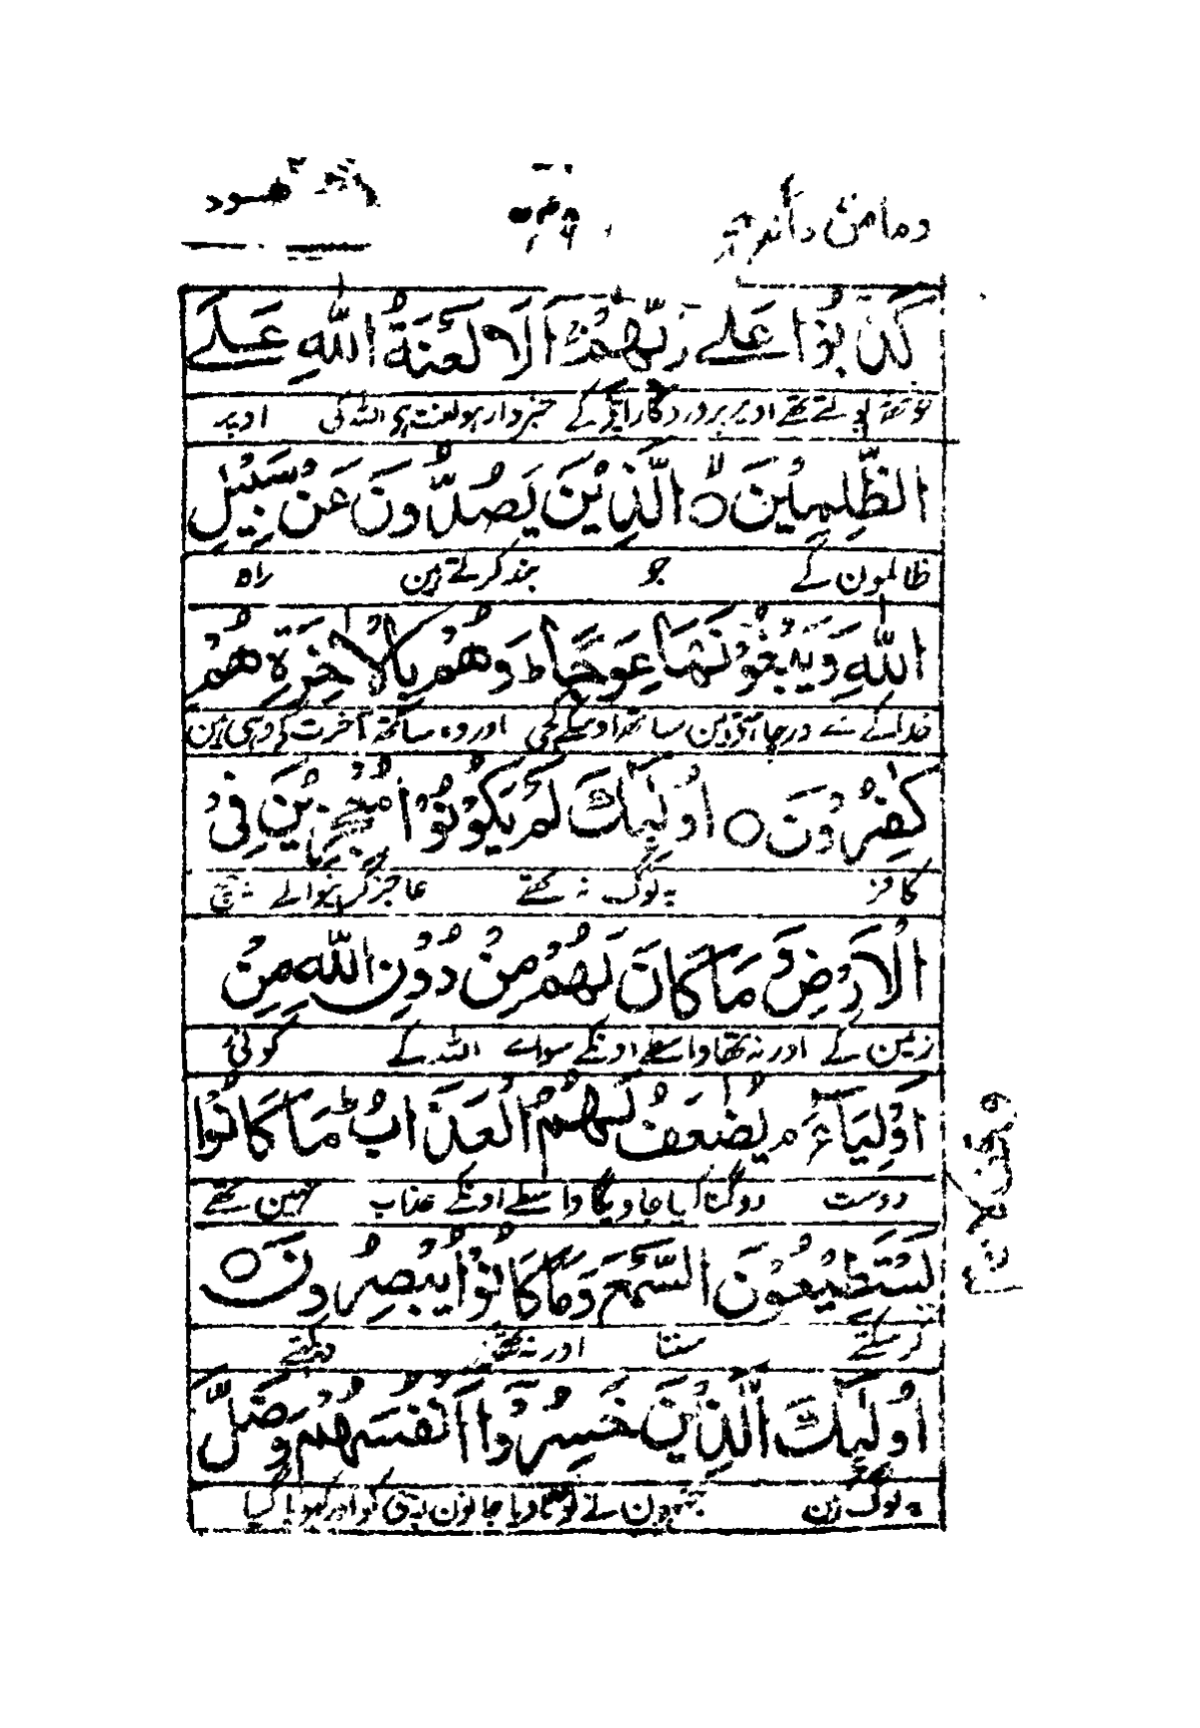 ومامن دآبة ھود
كَذَبُوْا عَلٰے رَبِّهِمْ اَلَا لَعْنَةُ اللّٰهِ عَلَے
بولتے تھے اوپر پروردگار اپنے کے خبردار ہو لعنت ہی اللہ کی اوپر
الظّٰلِمِيْنَ ۙ الَّذِيْنَ يَصُدُّوْنَ عَنْ سَبِيْلِ
ظالمون کے جو بند کرتے ہین راہ
اللّٰهِ وَيَبْغُوْنَهَا عِوَجًا ط وَهُمْ بِالْاٰخِرَةِ هُمْ
خدا کے سے اور چاہتے ہین ساتھ اوسکے کجی اور وہ ساتھ آخرت کے وہی ہین
كٰفِرُوْنَ ○ اُولٰٓئِكَ لَمْ يَكُوْنُوْا مُعْجِزِيْنَ فِى
کافر یہ لوگ نہ تھے عاجز کرنیوالے بیچ
الْاَرْضِ وَمَا كَانَ لَهُمْ مِنْ دُوْنِ اللّٰهِ مِنْ
زمین کے اور نہ تھا واسطے اونکے سواے اللہ کے کوئی
اَوْلِيَآءَ م يُضٰعَفُ لَهُمُ الْعَذَابُ ط مَا كَانُوْا
دوست دوگنا کیا جاویگا واسطے اونکے عذاب نہین تھے
يَسْتَطِيْعُوْنَ السَّمْعَ وَمَا كَانُوْا يُبْصِرُوْنَ ○
کرسکتے سننا اور نہ تھے دیکھتے
اُولٰٓئِكَ الَّذِيْنَ خَسِرُوْٓا اَنْفُسَهُمْ وَضَلَّ
یہ لوگ ہین جنہون نے ٹوٹا دیا جانون اپنی کو اور کھویا گیا